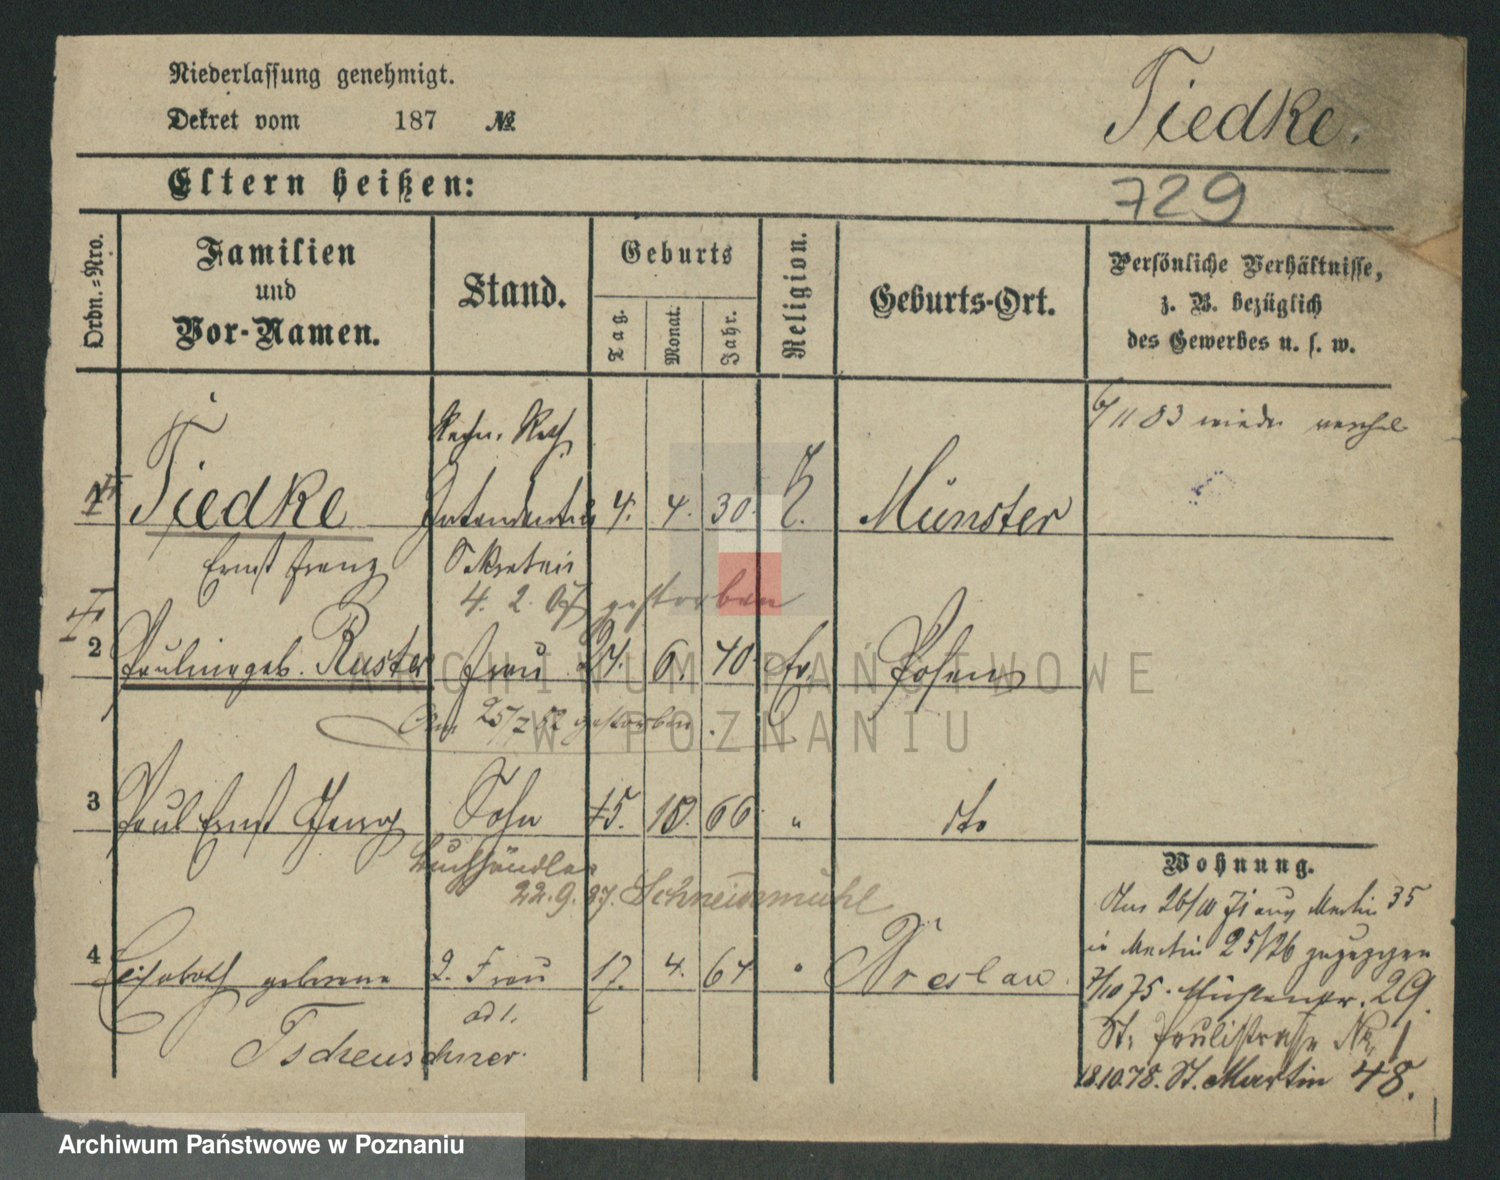 Niederlassung genehmigt.
Dekret vom 187 №
Tiedke.
Eltern heißen:
729
Ordn.=Nro.
Familien
und
Vor-Namen.
Stand.
Geburts
Tag.
Monat.
Jahr.
Religion.
Geburts-Ort.
Persönliche Verhältnisse,
z. B. bezüglich
des Gewerbes u. s. w.
6/11 83 wieder
Rechn. Rath
1 Tiedke Intendantur 4. 4. 30. Münster
Ernst Franz Sekretair
4. 2. 07 gestorben
2 Pauline geb. Ruster Frau 24. 6. 40. Ev. Posen
gestorben
3 Paul Ernst Georg Sohn 15. 10. 66 " dto
Buchhändler
22.9.87. Schneidemühl
4 Elisabeth geborene 2. Frau 17. 4. 64 " Breslau
ad 1.
Tscheuschner.
Wohnung.
26/10 71 aus Martin 35
in Martin 25/26 gezogen
7/10 75. Mühlenstr. 29.
St. Paulistrasse Nr. 1
18.10.78. St. Martin 48.
ARCHIWUM PAŃSTWOWE
W POZNANIU
Archiwum Państwowe w Poznaniu